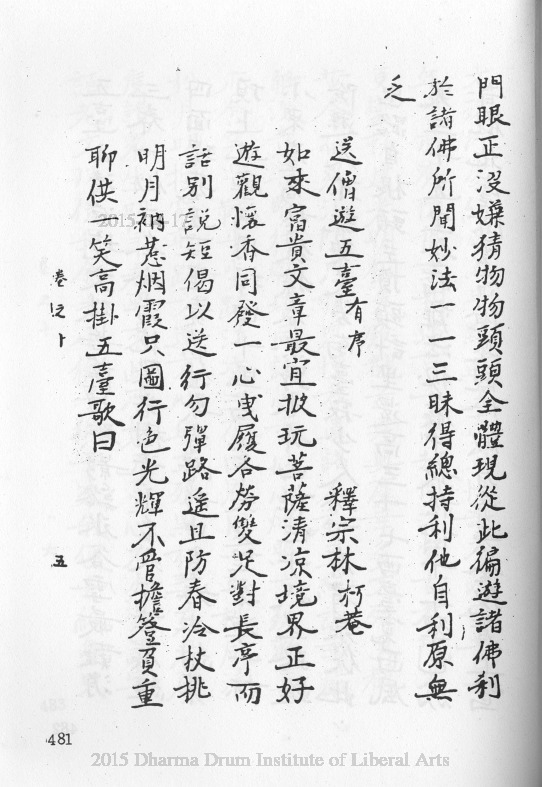 門眼正沒嫌猜物物頭頭全體現從此徧遊諸佛刹
於諸佛所聞妙法一一三昧得總持利他自利原無
乏
送僧遊五臺有序
釋宗林朽菴
如來富貴文章最宜披玩菩薩清凉境界正好
遊觀懷香同發一心曳履合勞雙足對長亭而
話別說短偈以送行勿彈路遙且防春冷杖挑
明月衲惹烟霞只圖行色光輝不管擔簦負重
聊供一笑高掛五臺歌曰
卷
五
481
2015 Dharma Drum Institute of Liberal Arts